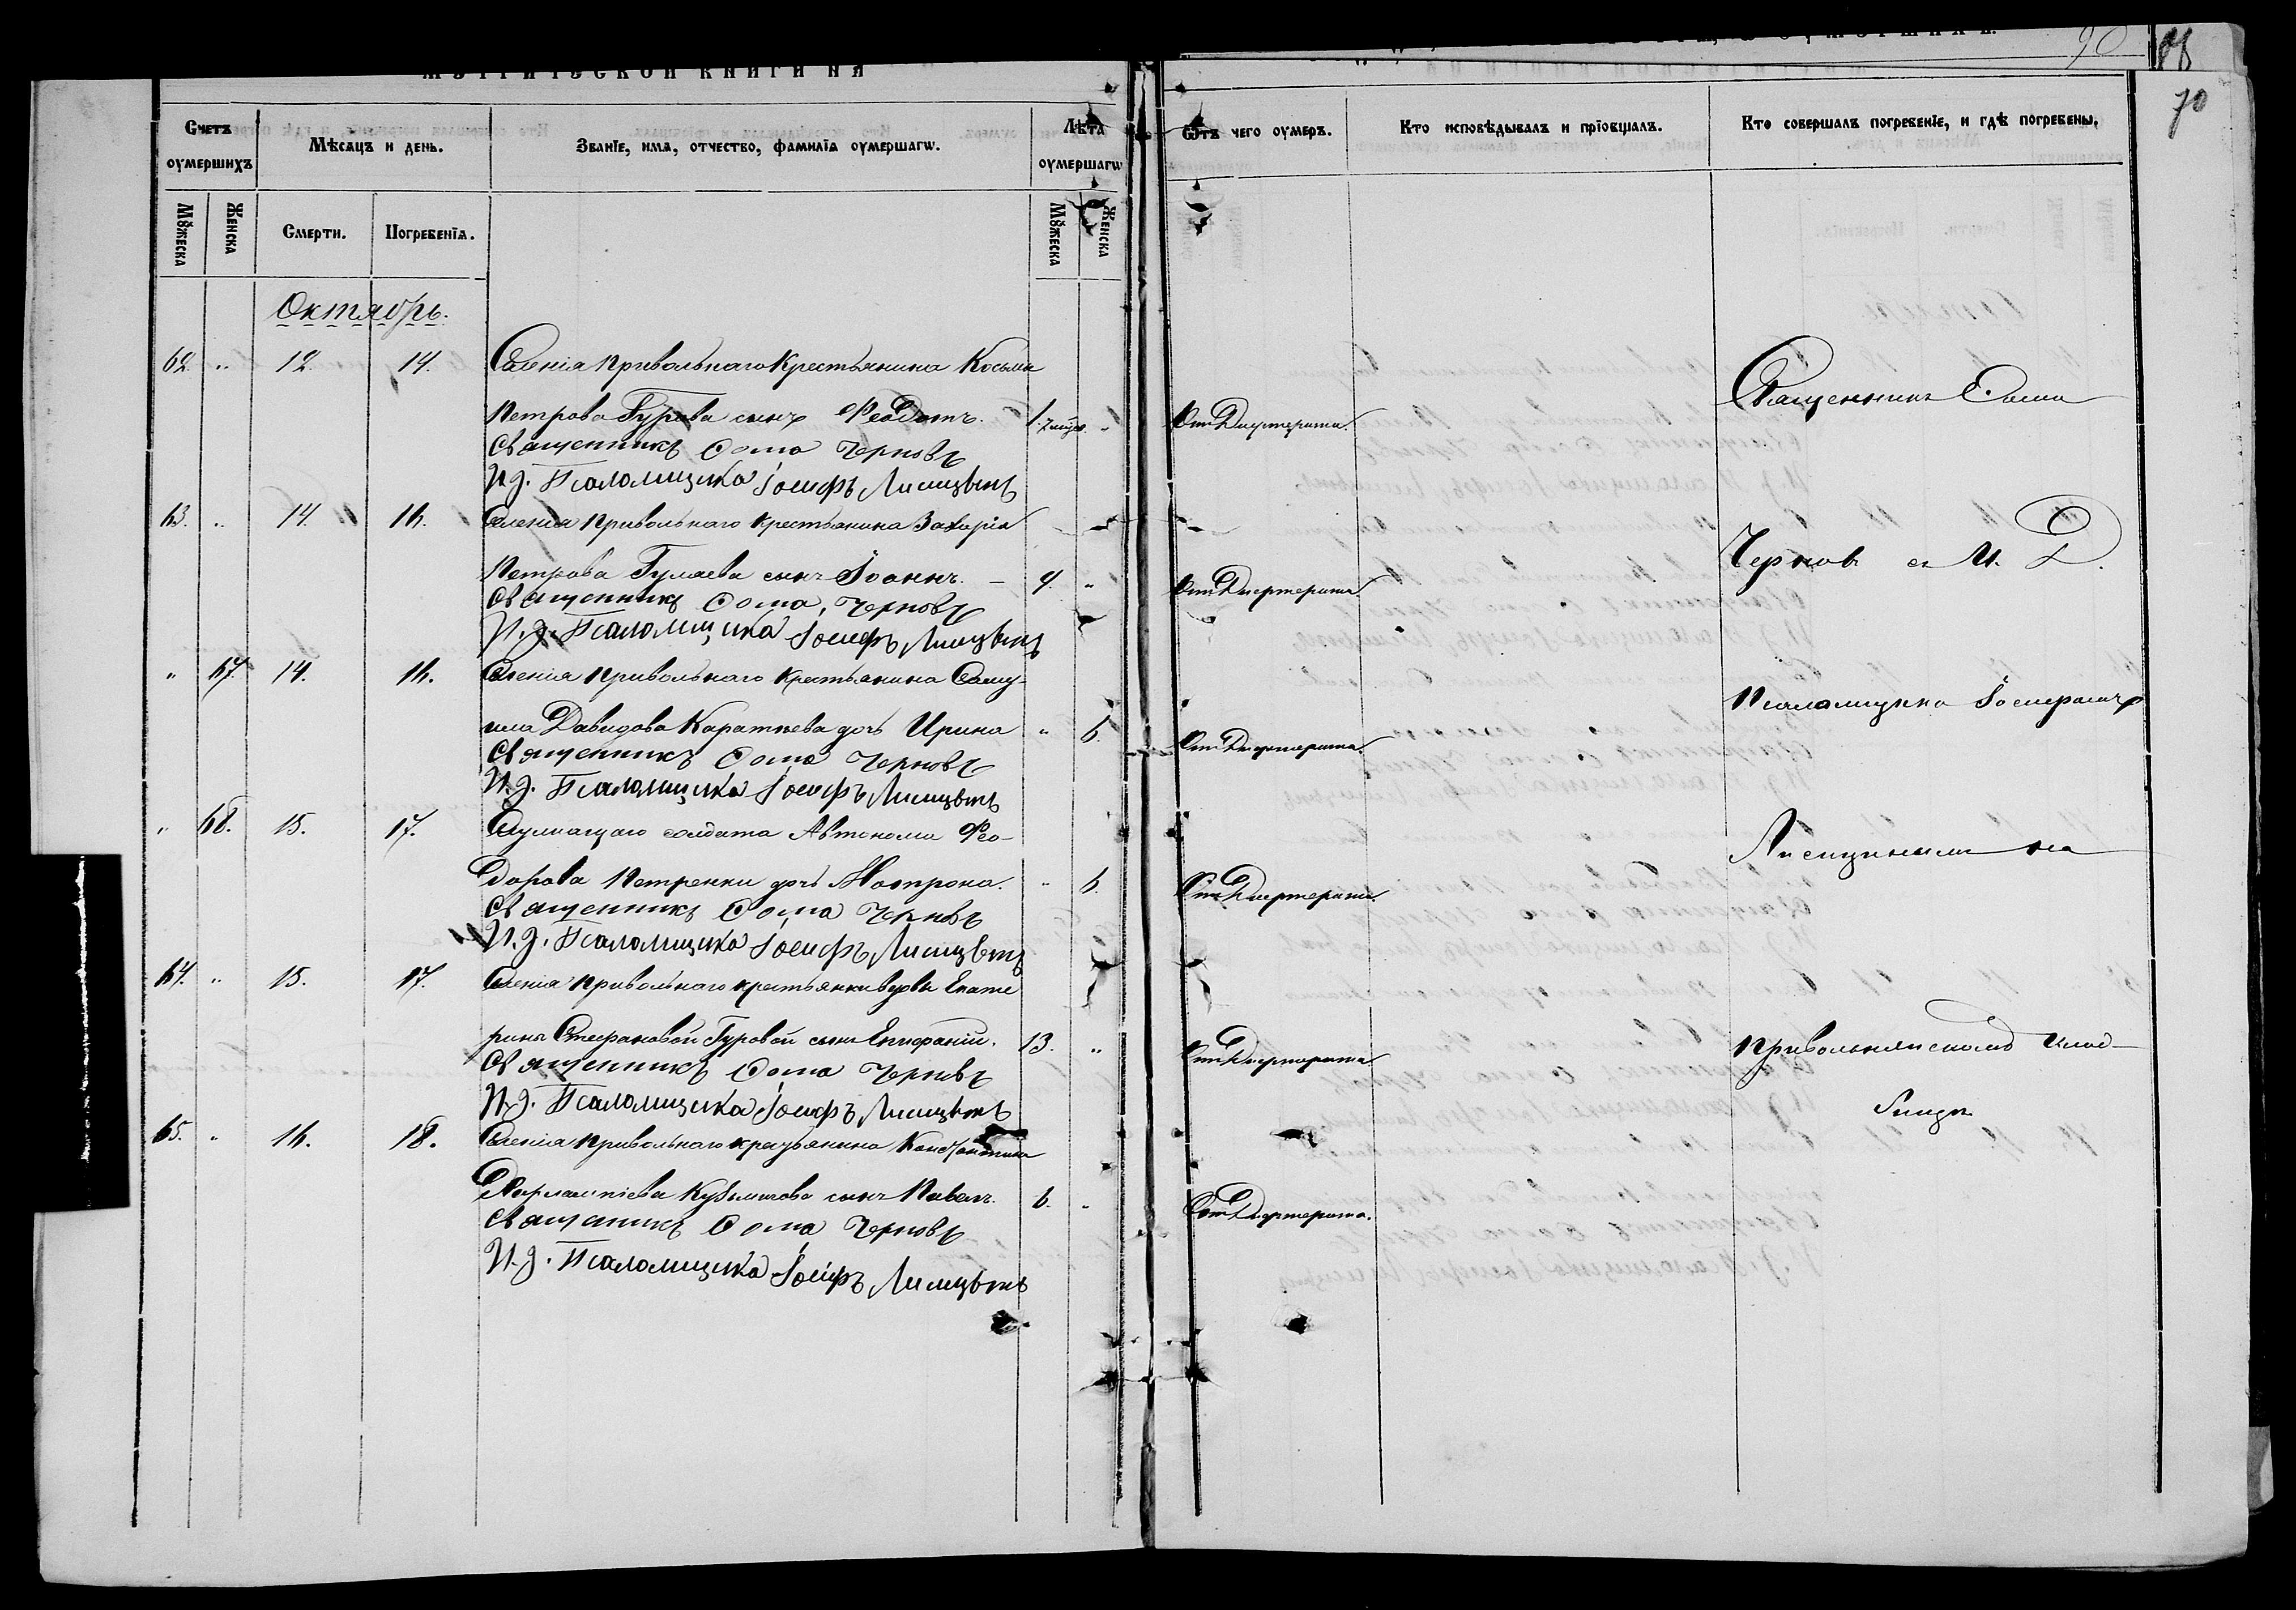 МЕТРИЧЕСКОЙ КНИГИ НА
90
70
Счетъ оумершихъ
Мѣсяцъ и день.
Званїе, имя, отчество, фамилїя оумершагѡ.
Лѣта оумершагѡ
Ѿтъ чего оумеръ.
Кто исповѣдывалъ и прїобщалъ.
Кто совершалъ погребенїе, и гдѣ погребены.
Мꙋжеска
Женска
Смерти.
Погребенїя.
Мꙋжеска
Женска
Октябрь.
62. " 12. 14. Селенія Привольнаго Крестьянина Косьмы
Петрова Гурова сынъ Феодотъ. 1. " Отъ Дифтерита.
Священникъ Ѳома Черновъ
И.д. Псаломщика Іосифъ Лисицынъ
63. " 14. 16. Селенія Привольнаго Крестьянина Захарія
Петрова Гуляева сынъ Іоаннъ. — 4. " Отъ Дифтерита.
Священникъ Ѳома Черновъ
И.д. Псаломщика Іосифъ Лисицынъ
" 67. 14. 16. Селенія Привольнаго Крестьянина Саму-
ила Давидова дочь Ирина " 6. Отъ Дифтерита.
Священникъ Ѳома Черновъ
И.д. Псаломщика Іосифъ Лисицынъ
" 68. 15. 17. Служащаго солдата Автонома Фео-
дорова Петренки дочь Матрона. " 6. Отъ Дифтерита.
Священникъ Ѳома Черновъ
И.д. Псаломщика Іосифъ Лисицынъ
64. " 15. 17. Селенія Привольнаго крестьянки вдовы Екате
рины Стефановой Гуровой сынъ Епифаній. 13. " Отъ Дифтерита.
Священникъ Ѳома Черновъ
И.д. Псаломщика Іосифъ Лисицынъ
65. " 16. 18. Селенія Привольнаго крестьянина Константина
Харлампіева Кузьмичова сынъ Павелъ. 6. " Отъ Дифтерита.
Священникъ Ѳома Черновъ
И.д. Псаломщика Іосифъ Лисицынъ
Священникъ Ѳома
Черновъ съ И. Д.
Псаломщика Іосифомъ
Лисицынымъ на
Привольнянскомъ клад-
бищѣ